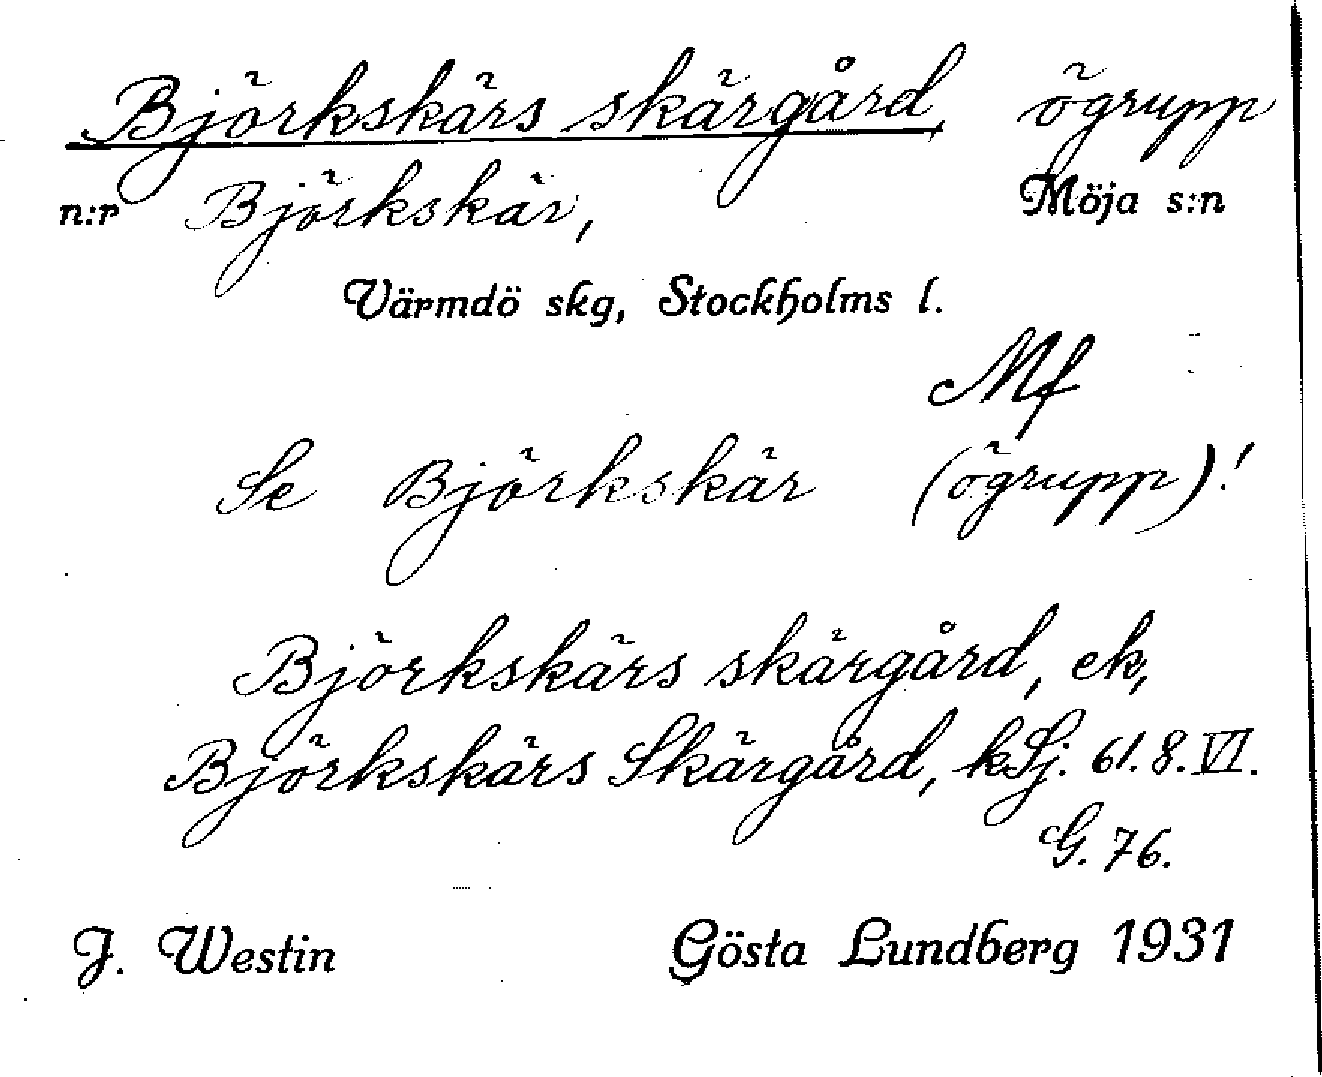 Björkskärs skärgård, ögrupp
n:r Björkskär, Möja s:n
Värmdö skg, Stockholms l.
Mf
Se Björkskär (ögrupp)!
Björkskärs skärgård, ek,
Björkskärs Skärgård, kSj. 61. 8. VI.
G. 76.
J. Westin Gösta Lundberg 1931